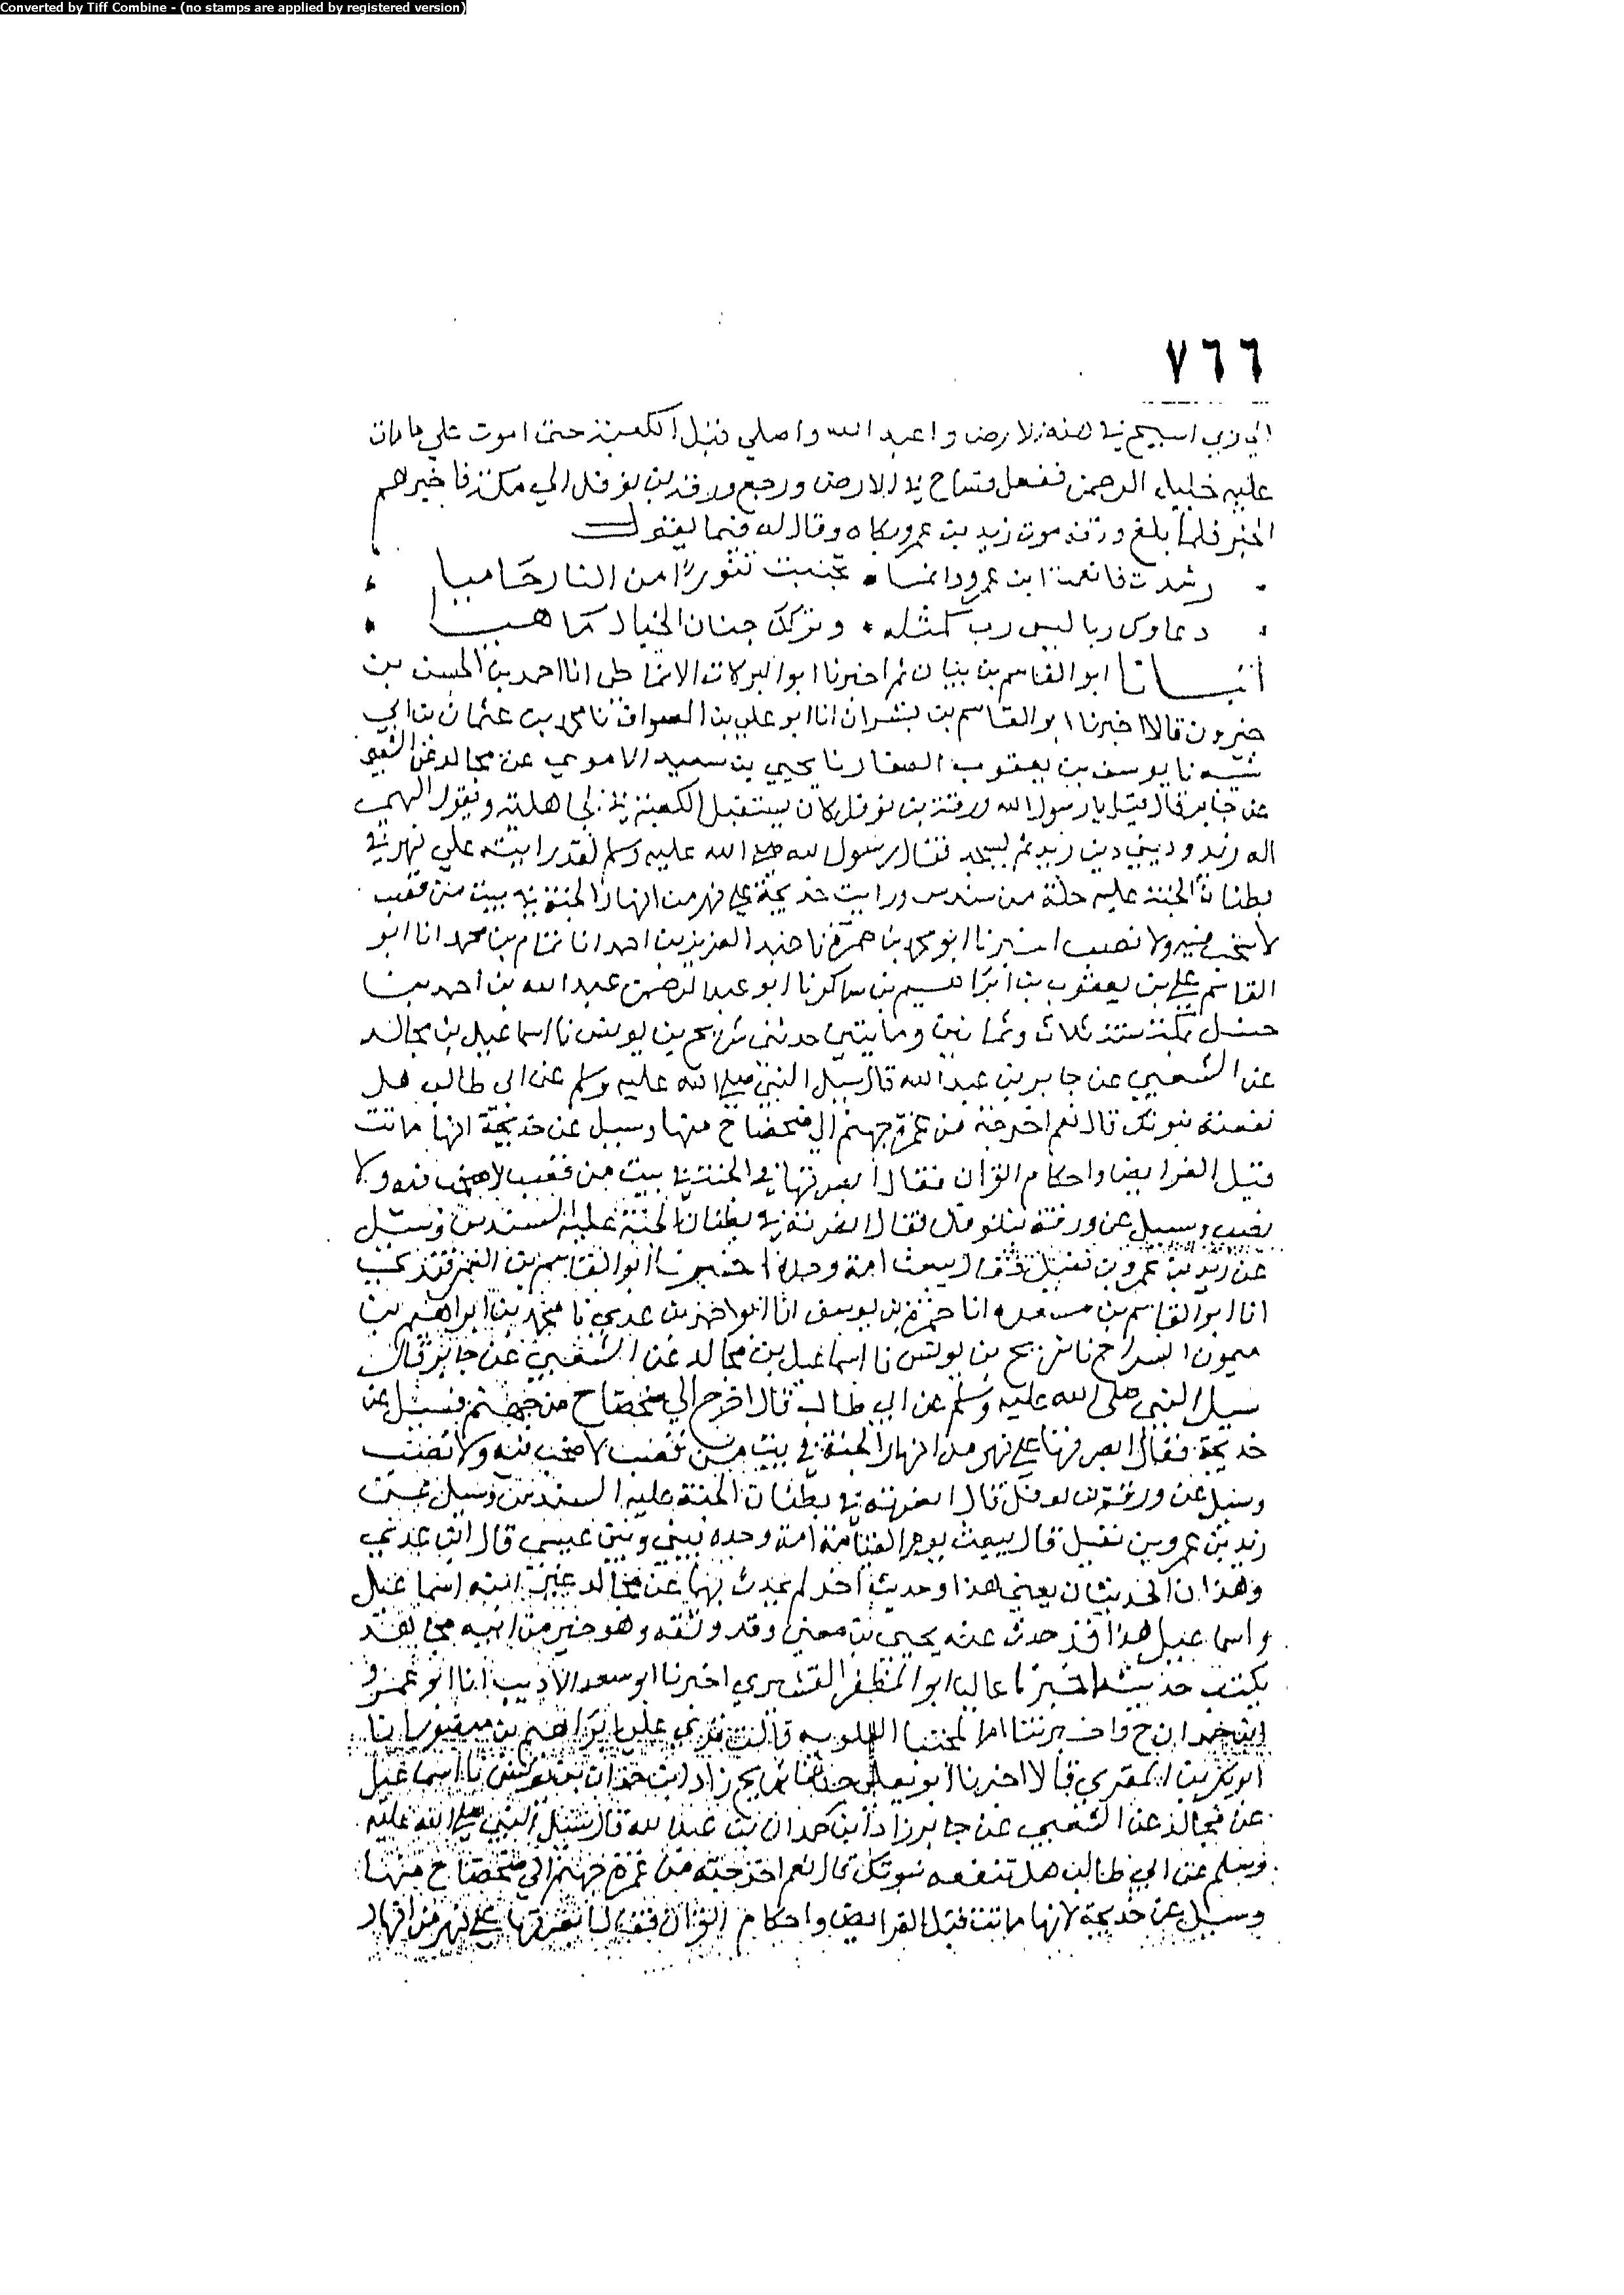 Converted by Tiff Combine - (no stamps are applied by registered version)
٧٦٦
الي ربي اسيح في هذه الارض واعبد الله واصلي قبل الكعبة حتى اموت علي ما مات
عليه خليل الرحمن ففعل فساح في الارض ورجع ورقة بن نوفل الي مكة فاخبرهم
الخبر فلما بلغ ورقة موت زيد بن عمرو بكاه وقال له فيما يقول
رشدت فانعمت ابن عمرو وانما تجنبت تنورا من النار حاميا
دعاوك ربا ليس رب كمثله وتركك جنان الخبال كما هيا
انبانا ابو القاسم بن بيان ثم اخبرنا ابو البركات الانماطي انا احمد بن الحسن بن
خيرون قالا اخبرنا ابو القاسم بن بشران انا ابو علي بن الصواف نا محمد بن عثمان بن ابي
شيبه نا يوسف بن يعقوب الصفار نا يحيي بن سعيد الاموي عن مجالد عن الشعبي
عن جابر قال قيل يا رسول الله ورقة بن نوفل كان يستقبل الكعبة في الجاهلية ويقول الهي
اله زيد وديني دين زيد ثم يسجد فقال رسول الله صلى الله عليه وسلم لقد رايته علي نهر في
بطنان الجنة عليه حلة من سندس ورايت خديجة على نهر من انهار الجنة في بيت من قصب
لا صخب فيه ولا نصب اخبرنا ابو محمد بن حمزة نا عبد العزيز بن احمد انا تمام بن محمد انا ابو
القاسم علي بن يعقوب بن ابراهيم بن شاكر نا ابو عبد الرحمن عبد الله بن احمد بن
حنبل بمكة سنة ثلاث وثمانين ومايتين حدثني شريح بن يونس نا اسماعيل بن مجالد
عن الشعبي عن جابر بن عبد الله قال سيل النبي صلى الله عليه وسلم عن ابي طالب هل
نفعته نبوتك قال نعم اخرجته من غمرة جهنم الي ضحضاح منها وسيل عن خديجة انها ماتت
قبل الفرايض واحكام القران فقال ابصرتها في الجنة في بيت من قصب لا صخب فيه ولا
نصب وسيل عن ورقة بن نوفل فقال ابصرته في بطنان الجنة عليه السندس وسيل
عن زيد بن عمرو بن نفيل فقال يبعث امة وحده اخبرنا ابو القاسم بن السمرقندي
انا ابو القاسم بن مسعده انا حمزة بن يوسف انا ابو احمد بن عدي نا محمد بن ابراهيم بن
ميمون السراج نا شريح بن يونس نا اسماعيل بن مجالد عن الشعبي عن جابر قال
سيل النبي صلى الله عليه وسلم عن ابي طالب قال اخرج الي ضحضاح من جهنم فسيل عن
خديجة فقال ابصرتها على نهر من انهار الجنة في بيت من قصب لا صخب فيه ولا نصب
وسيل عن ورقة بن نوفل قال ابصرته في بطنان الجنة عليه السندس وسيل عن
زيد بن عمرو بن نفيل قال يبعث يوم القيامة امة وحده بيني وبين عيسي قال ابن عدي
وهذان الحديثان يعني هذا وحديث اخر لم يحدث بهما عن مجالد غير ابنه اسماعيل
واسماعيل هذا قد حدث عنه يحيي بن معين وقد وثقه وهو خير من ابيه مجالد
يكتب حديثه اخبرنا عاليا ابو المظفر القشيري اخبرنا ابو سعد الاديب انا ابو عمرو
ابن حمدان ح واخبرتنا ام المجتبا العلويه قالت قري علي ابراهيم بن منصور انا
ابو بكر بن المقري قالا اخبرنا ابو يعلى حدثنا شريح زاد ابن حمدان بن يونس نا اسماعيل
عن مجالد عن الشعبي عن جابر زاد ابن حمدان بن عبد الله قال سيل النبي صلى الله عليه
وسلم عن ابي طالب هل تنفعه نبوتك قال نعم اخرجته من غمرة جهنم الي ضحضاح منها
وسيل عن خديجة لانها ماتت قبل الفرايض واحكام القران فقال ابصرتها على نهر من انهار